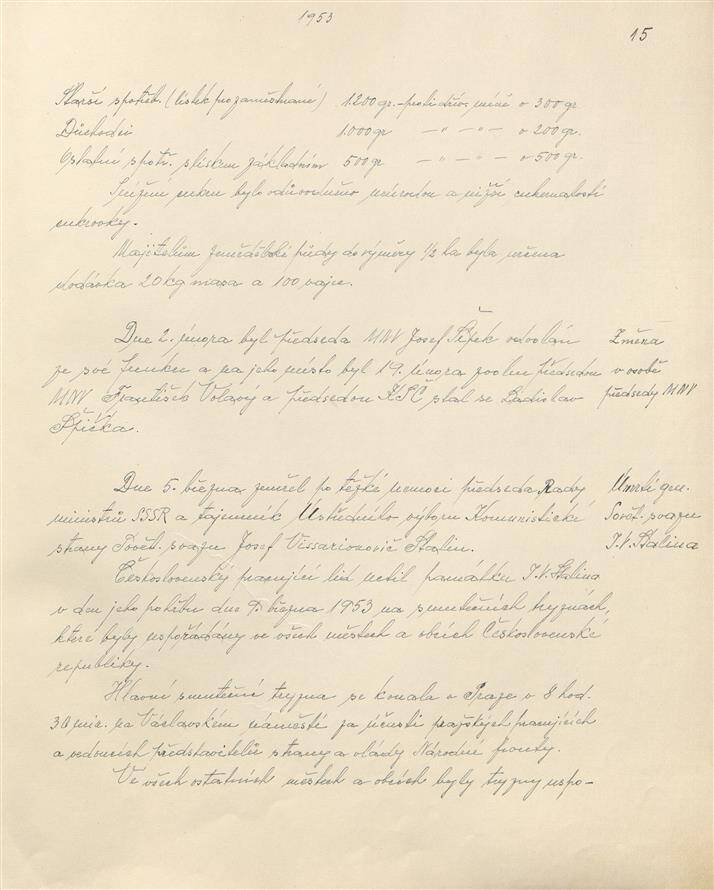 1953
15
Starší spotřeb. (lístek pro zaměstnané) 1.200 gr. - proti dřív. méně o 300 gr
Důchodci 1.000 gr — " — " — o 200 gr.
Ostatní spotř. s lískem základním 500 gr — " — " — o 500 gr.
Snížení cukru bylo odůvodněno neúrodou a nižší cukernatostí
cukrovky.
Majitelům zemědělské půdy do výměry ½ ha byla určena
dodávka 20 kg masa a 100 vajec.
Dne 2. února byl předseda MNV Josef Šípek odvolán
ze své funkce a na jeho místo byl 19. února zvolen předsedou
MNV František Volavý a předsedou KSČ stal se Ladislav
Špička.
Změna
v osobě
předsedy MNV
Dne 5. března zemřel po těžké nemoci předseda Rady
ministrů SSSR a tajemník Ústředního výboru Komunistické
strany Sovět. svazu Josef Vissarionovič Stalin.
Úmrtí gen.
Sovět. svazu
J. V. Stalina
Československý pracující lid uctil památku J. V. Stalina
v den jeho pohřbu dne 9. března 1953 na smutečních tryznách,
které byly uspořádány ve všech městech a obcích Československé
republiky.
Hlavní smuteční tryzna se konala v Praze v 8 hod.
30 min. na Václavském náměstí za účasti pražských pracujících
a vedoucích představitelů strany a vlády Národní fronty.
Ve všech ostatních městech a obcích byly tryzny uspo-